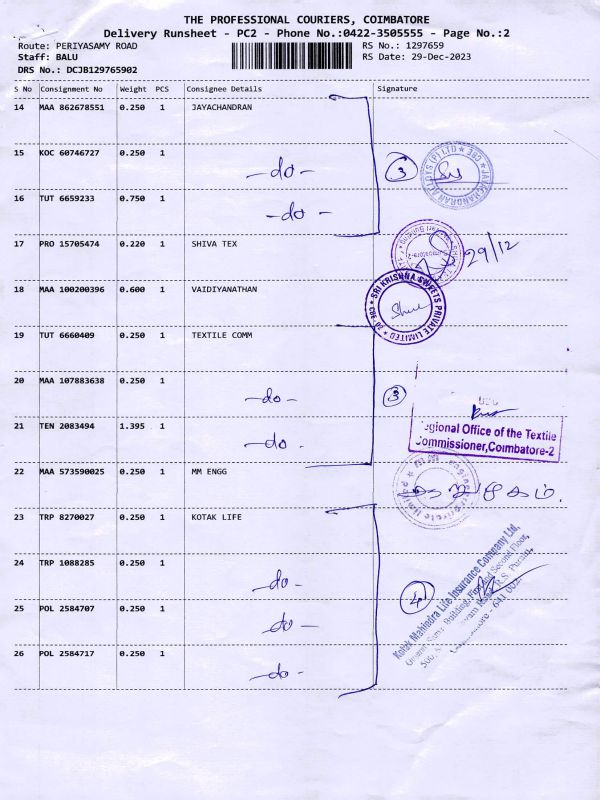 THE PROFESSIONAL COURIERS, COIMBATORE
Delivery Runsheet - PC2 - Phone No.:0422-3505555 - Page No.:2
Route: PERIYASAMY ROAD RS No.: 1297659
Staff: BALU RS Date: 29-Dec-2023
DRS No.: DCJB129765902
S No Consignment No Weight PCS Consignee Details Signature
14 MAA 862678551 0.250 1 JAYACHANDRAN
15 KOC 60746727 0.250 1
-do- 3 JAYACHANDRAN ALLOYS (P) LTD CBE
16 TUT 6659233 0.750 1
-do-
17 PRO 15705474 0.220 1 SHIVA TEX
29/12
18 MAA 100200396 0.600 1 VAIDIYANATHAN
SRI KRISHNA SWEETS PRIVATE LIMITED CBE-20
19 TUT 6660409 0.250 1 TEXTILE COMM
20 MAA 107883638 0.250 1
-do- 3
21 TEN 2083494 1.395 1
-do-
Regional Office of the Textile
Commissioner, Coimbatore-2
22 MAA 573590025 0.250 1 MM ENGG
23 TRP 8270027 0.250 1 KOTAK LIFE
24 TRP 1088285 0.250 1
-do- 4
Kotak Mahindra Life Insurance Company Ltd,
Building, First and Second Floor,
R.S. Puram,
641 002
25 POL 2584707 0.250 1
-do-
26 POL 2584717 0.250 1
-do-